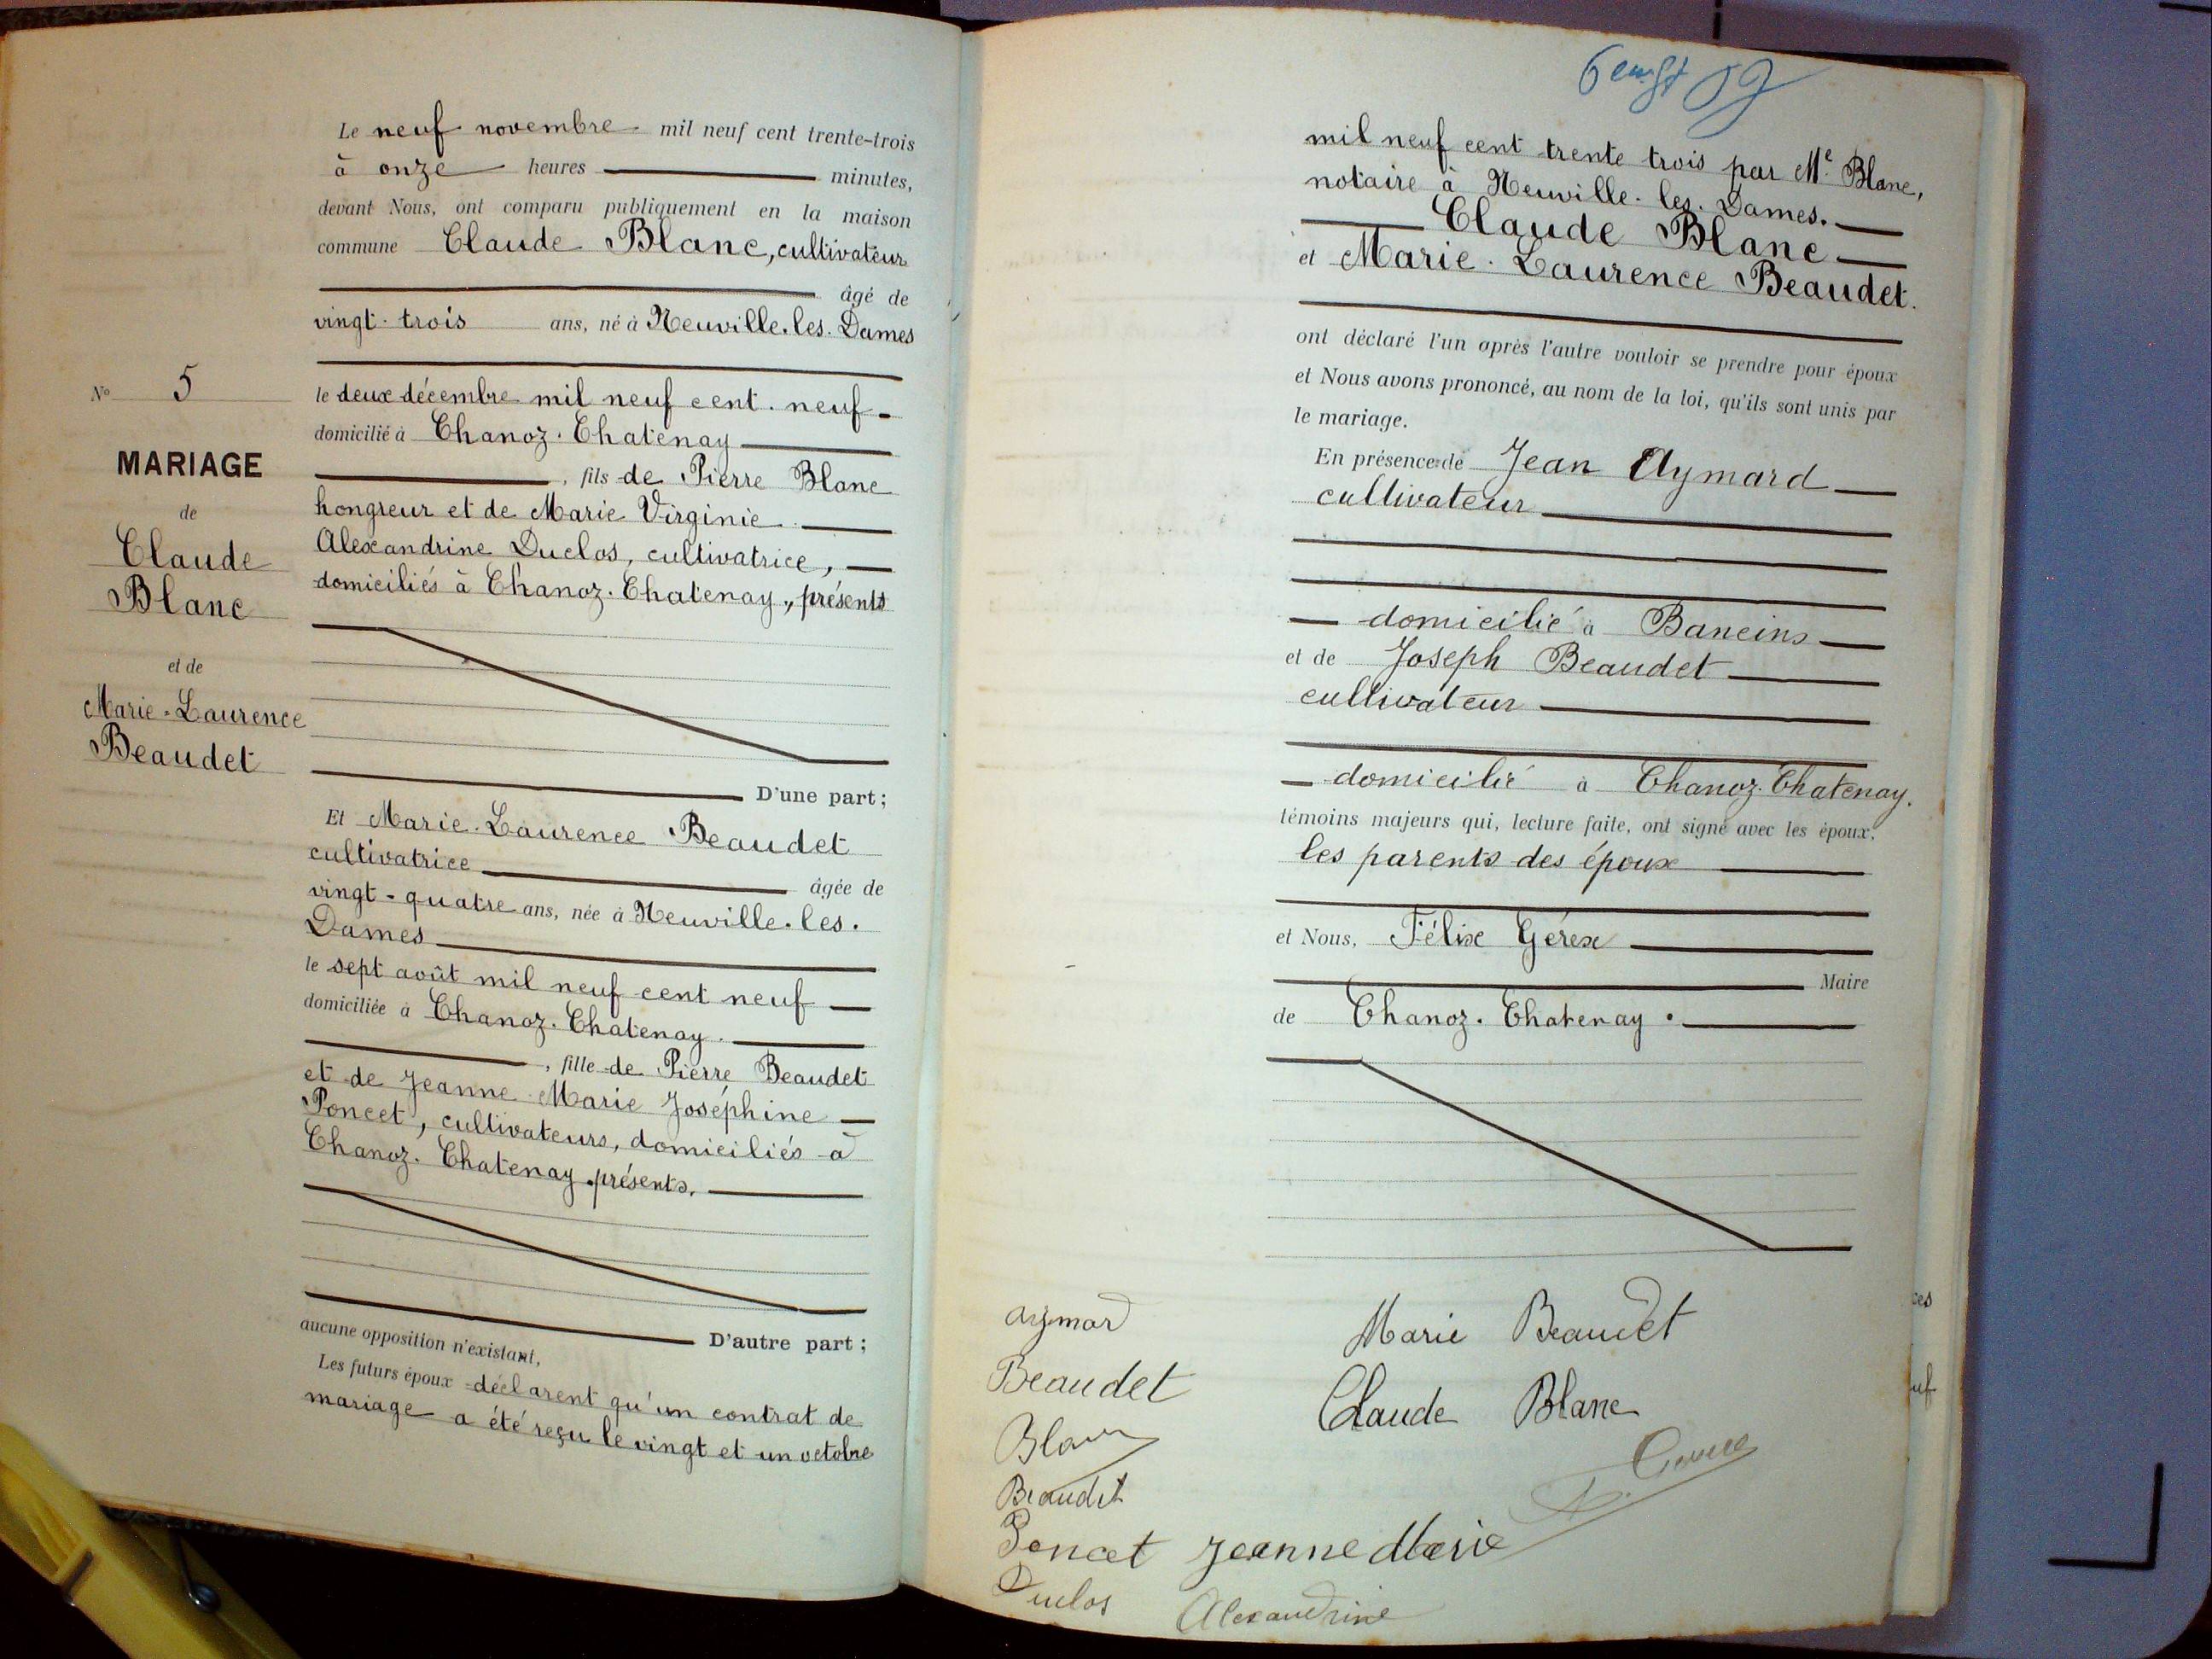 Le neuf novembre mil neuf cent trente-trois
à onze heures minutes,
devant Nous, ont comparu publiquement en la maison
commune Claude Blanc, cultivateur
âgé de
vingt-trois ans, né à Neuville-les-Dames
le deux décembre mil neuf cent neuf
domicilié à Chanoz-Chatenay
, fils de Pierre Blanc
hongreur et de Marie Virginie
Alexandrine Duclos, cultivatrice,
domiciliés à Chanoz-Chatenay, présents
D'une part;
Et Marie-Laurence Beaudet
cultivatrice
âgée de
vingt-quatre ans, née à Neuville-les-
Dames
le sept août mil neuf cent neuf
domiciliée à Chanoz-Chatenay.
, fille de Pierre Beaudet
et de Jeanne Marie Joséphine
Poncet, cultivateurs, domiciliés à
Chanoz-Chatenay présents.
D'autre part;
aucune opposition n'existant,
Les futurs époux déclarent qu'un contrat de
mariage a été reçu le vingt et un octobre
No 5
MARIAGE
de
Claude
Blanc
et de
Marie-Laurence
Beaudet
mil neuf cent trente trois par Me Blanc,
notaire à Neuville-les-Dames.
Claude Blanc
et Marie-Laurence Beaudet.
ont déclaré l'un après l'autre vouloir se prendre pour époux
et Nous avons prononcé, au nom de la loi, qu'ils sont unis par
le mariage.
En présence de Jean Aymard
cultivateur
domicilié à Baneins
et de Joseph Beaudet
cultivateur
domicilié à Chanoz-Chatenay.
témoins majeurs qui, lecture faite, ont signé avec les époux,
les parents des époux
et Nous, Félix Gérex
Maire
de Chanoz-Chatenay.
Aymard
Marie Beaudet
Beaudet
Claude Blanc
Blanc
Beaudet
Poncet Jeanne Marie
Duclos Alexandrine